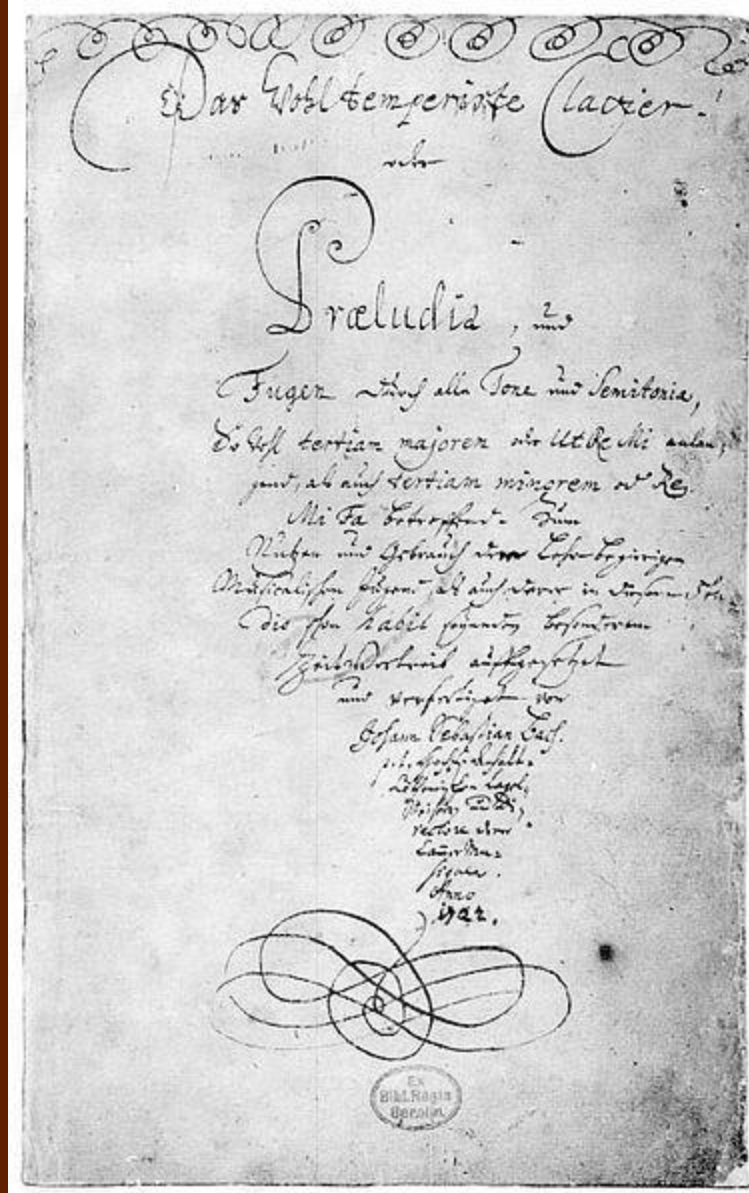 Das Wohltemperirte Clavier.
oder
Præludia, und
Fugen durch alle Tone und Semitonia,
So wohl tertiam majorem oder Ut Re Mi anlan-
gend, als auch tertiam minorem oder Re
Mi Fa betreffend. Zum
Nutzen und Gebrauch der Lehr-begierigen
Musicalischen Jugend, als auch derer in diesem stu-
dio schon habil seyenden besonderem
Zeit Vertreib auffgesetzet
und verfertiget von
Johann Sebastian Bach.
p. t. Hochfürstl.
Capel-
Meistern und Di-
rectore derer
Cammer Mu-
siquen.
Anno
1722.
Ex
Bibl. Regia
Berolin.